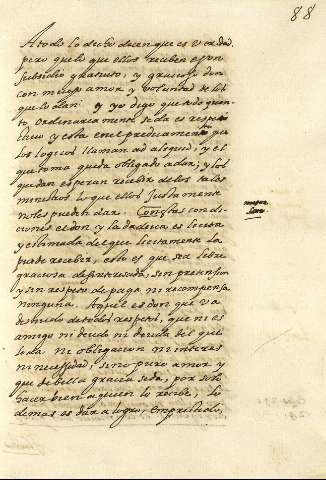 88
A todo lo dicho dicen que es verdad
pero que lo que ellos reciben es un
subsidio gratuito, y gracioso don
con mucho amor y voluntad de los
que lo dan: y yo digo que todo quan-
to, ordinariamente se da es respe
ctiue y esta en el predicamento que
los logicos llaman ad aliquid, y el
que toma queda obligado a dar, y los
que dan esperan recibir de los tales
ministros lo que ellos justamente
no les pueden dar. Con estas condi-
ciones el don y la dadiua es licita
y estimada del que licitamente la
puede recebir, esto es que sea libre
graciosa desinteresada, sin pretension
y sin respeto de paga ni recompensa
ninguna. Aquel es don que va
desnudo de todos respetos, que ni es
amigo ni deudo ni deuda del que
lo da ni obligacion ni interes
ni necessidad; sino puro amor y
que de bella gracia se da, por solo
hacer bien a quien lo recibe, lo
demas es dar a logro, emprestido,